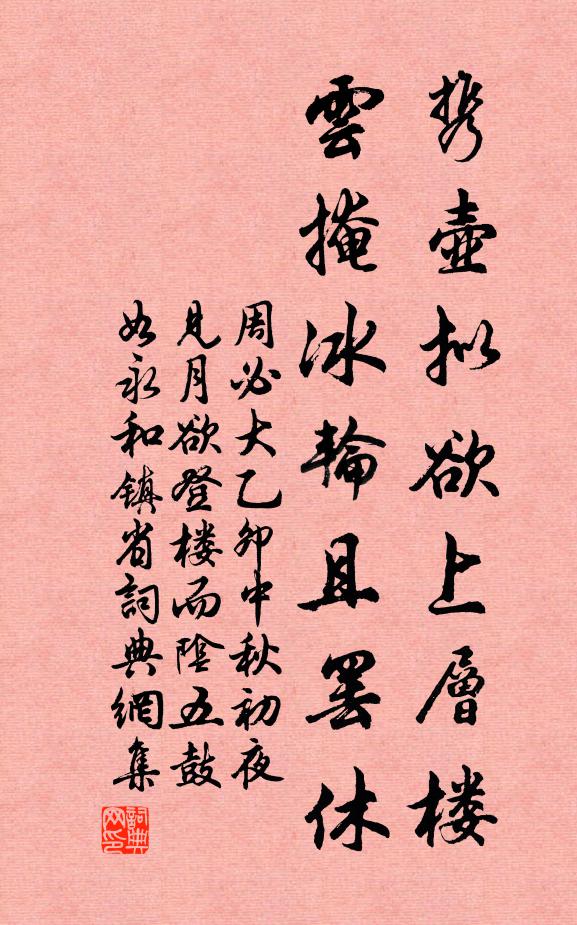 携壺拟欲上層楼
雲掩冰輪且罢休
周必大乙卯中秋初夜
見月欲登楼而陰五鼓
如永和镇省詞典網集
詞典网印